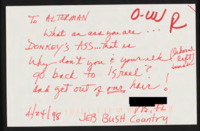 To ALTERMAN O-W R
What an ass you are...
DONKEY'S ASS...that is
Why don't you & your ilk
go back to Israel?
And get out of here!
4/24/98 JEB BUSH Country